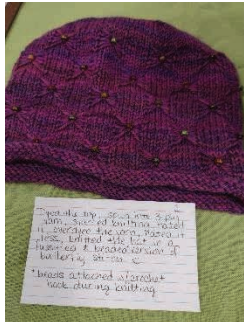 Dyed the top, spun into 3-ply
yarn, started knitting, hated
it, overdyed the yarn, hated it
less, knitted the hat in a
& beaded version of
butterfly stitch.
*beads attached w/crochet
hook during knitting